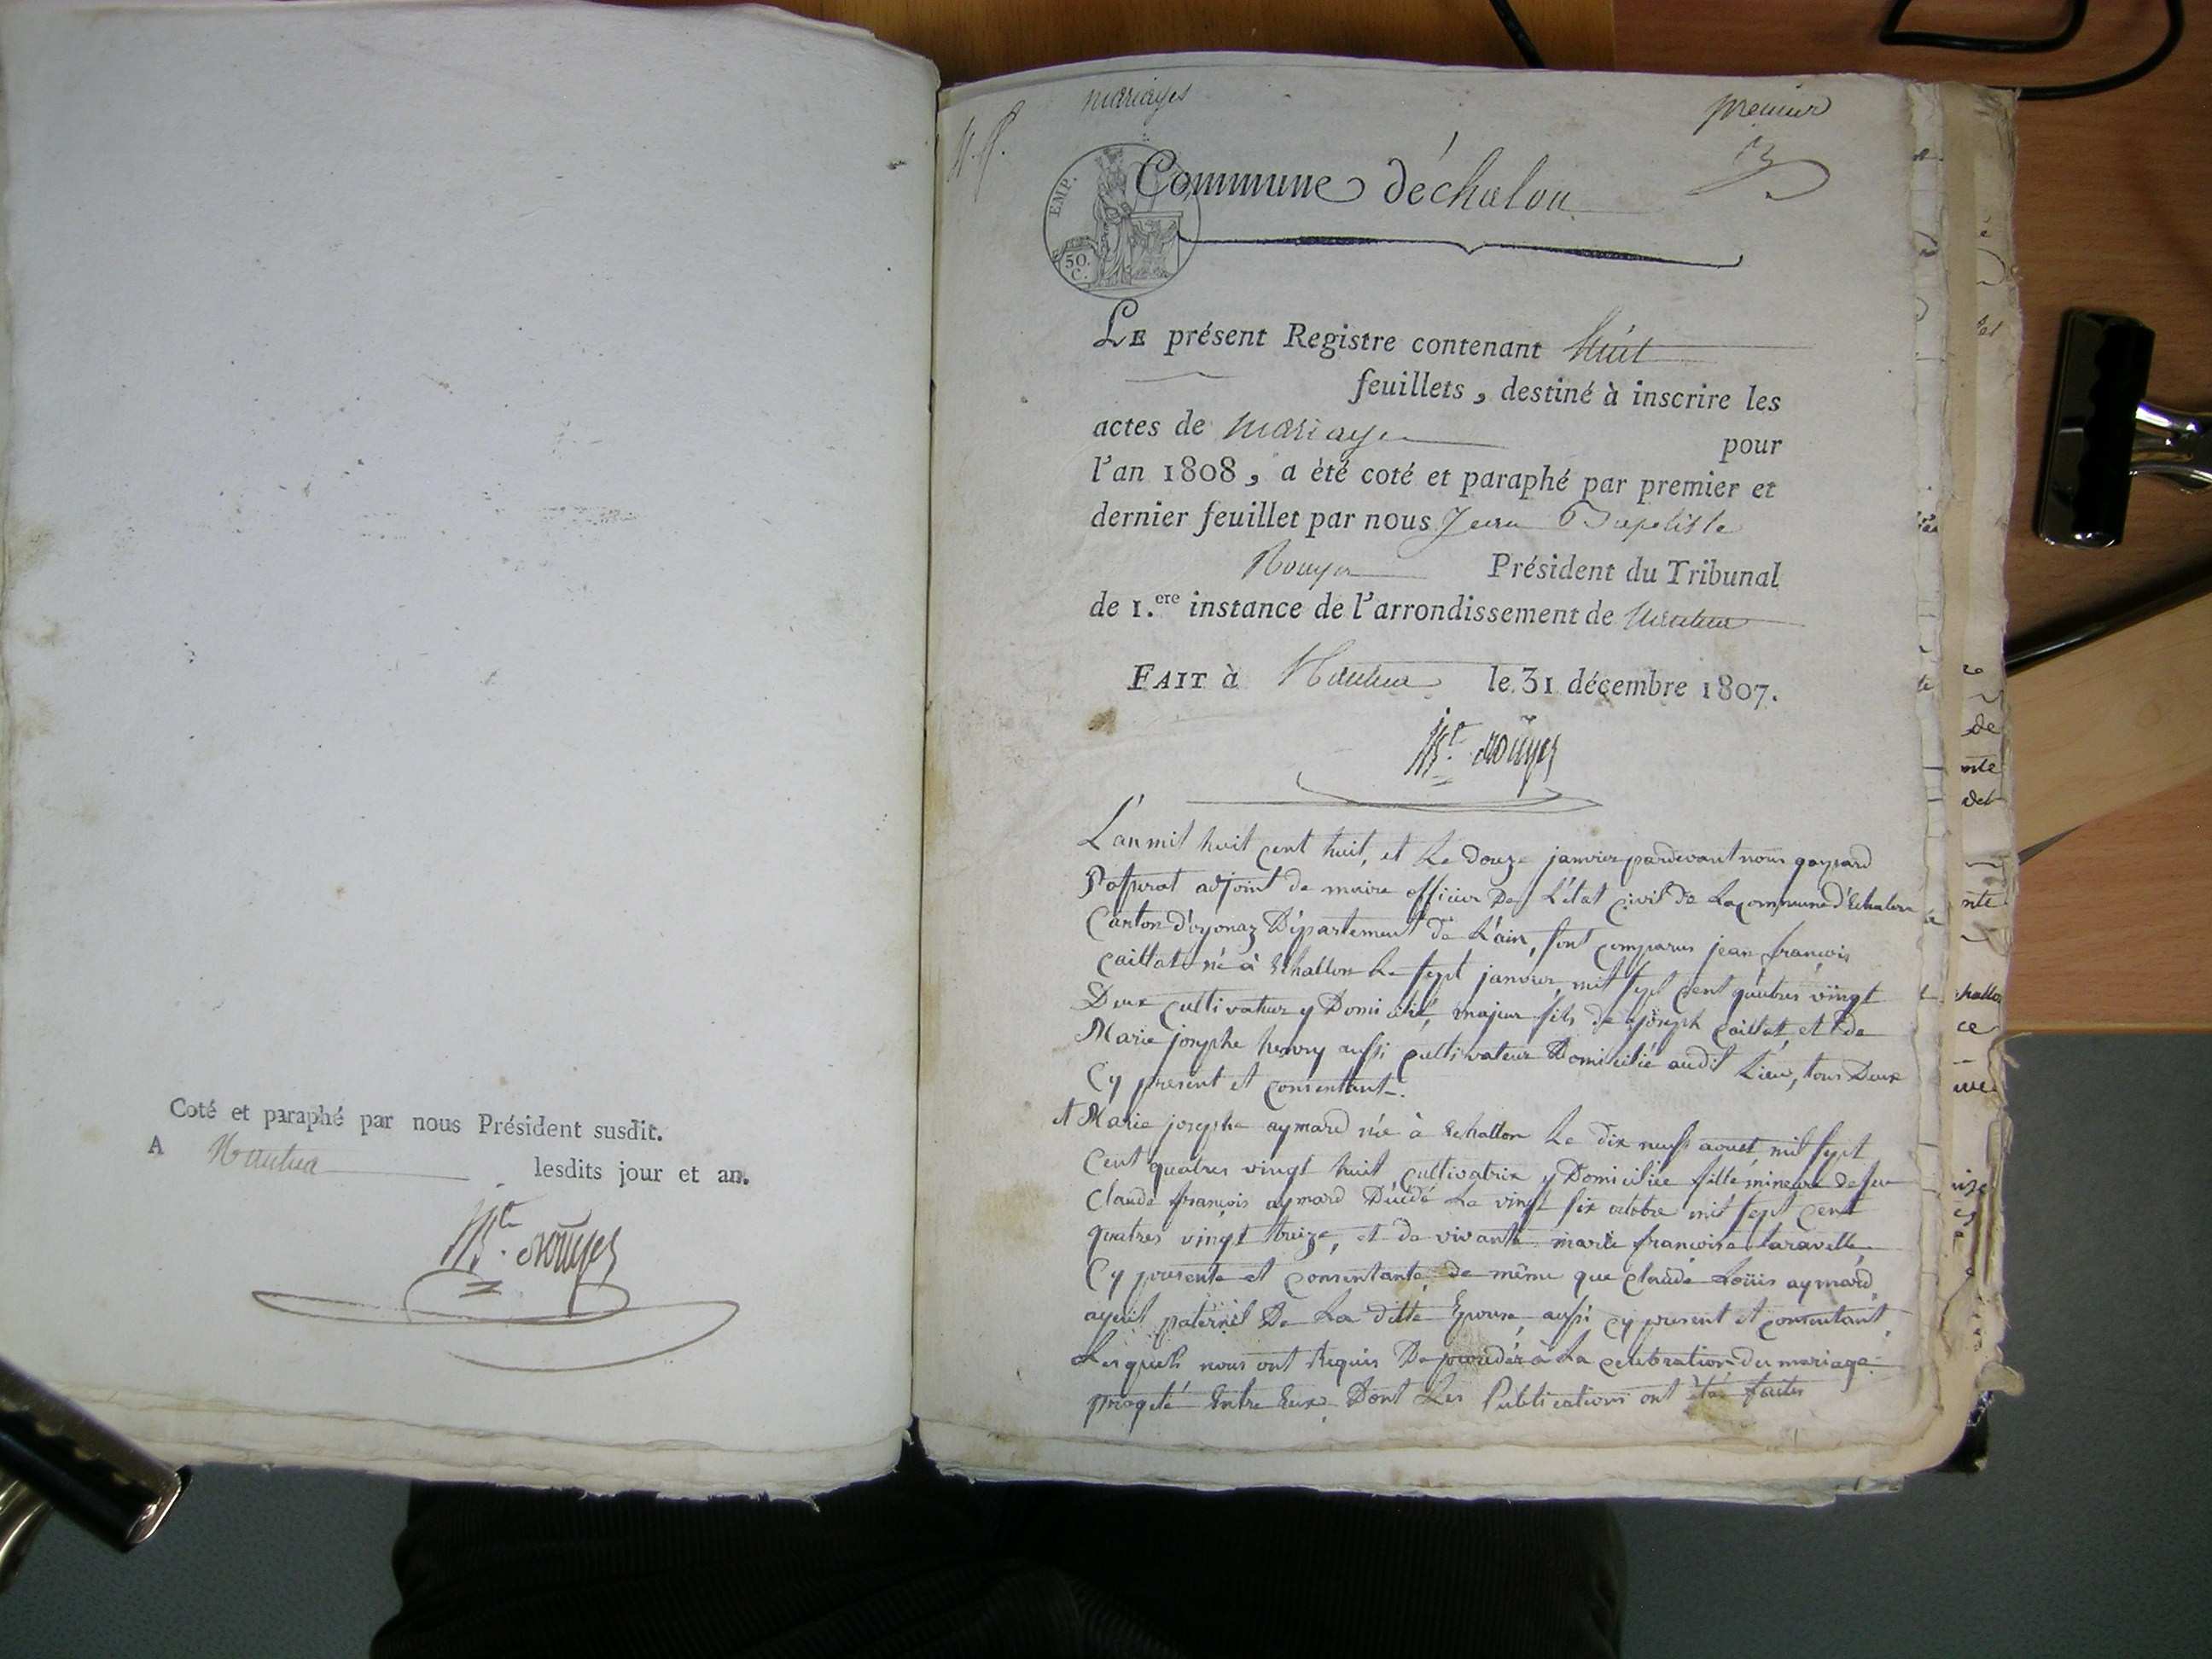 Coté et paraphé par nous Président susdit.
A Nantua lesdits jour et an.
Bte. Rouyer
mariages
premier
EMP.
50.
C.
Commune d'échalon
LE présent Registre contenant huit
feuillets, destiné à inscrire les
actes de mariage pour
l'an 1808, a été coté et paraphé par premier et
dernier feuillet par nous Jean Baptiste
Rouyer Président du Tribunal
de 1.ere instance de l'arrondissement de Nantua
FAIT à Nantua le 31 décembre 1807.
Bte. Rouyer
L'an mil huit cent huit, et Le douze janvier pardevant nous gaspard
adjoint de maire officier De L'état civil de La commune d'Echalon
Canton d'oyonaz Département de L'ain, sont comparus jean françois
caillat né à Echallon Le sept janvier mil sept cent quatres vingt
Deux cultivateur y Domicilié, majeur fils de joseph caillat, et de
Marie josephe henry aussi cultivateur Domicilié audit Lieu, tous Deux
Cy présent et consentant.
et Marie josephe aymard née à Echallon Le dix neuf aoust mil sept
Cent quatres vingt huit cultivatrix y Domiciliée fille mineure de feu
Claude françois aymard Décédé Le vingt six octobre mil sept Cent
quatres vingt treize, et de vivante marie françoise laravelle
Cy presente et consentante de même que claude Loüis aymard
ayeül paternel De La ditte Epouse, aussi cy present et consentant,
Lesquels nous ont Requis De procedér à La celebration du mariage
progeté Entre Eux, Dont Les Publications ont été faites